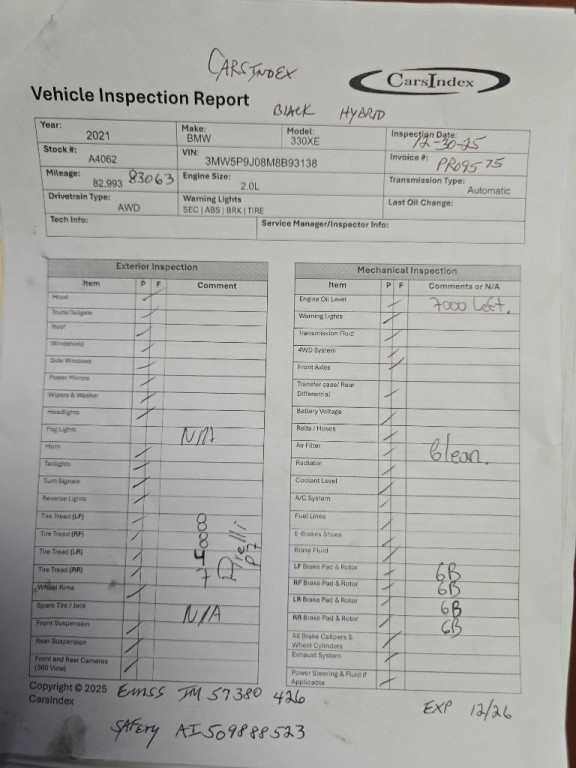 CARSINDEX
CarsIndex
Vehicle Inspection Report
BLACK HYBRID
Year: 2021 Make: BMW Model: 330XE Inspection Date: 12-30-25
Stock #: A4062 VIN: 3MW5P9J08M8B93138 Invoice #: PR09575
Mileage: 82,993 83063 Engine Size: 2.0L Transmission Type: Automatic
Drivetrain Type: AWD Warning Lights SEC | ABS | BRK | TIRE Last Oil Change:
Tech Info: Service Manager/Inspector Info:
Exterior Inspection
Item P F Comment
Hood
Trunk/Tailgate
Roof
Windshield
Side Windows
Power Mirrors
Wipers & Washer
Headlights
Fog Lights N/A
Horn
Taillights
Turn Signals
Reverse Lights
Tire Tread (LF) 8
Tire Tread (RF) 8
Tire Tread (LR) 4
Tire Tread (RR) 7
Pirelli P7
Wheel Rims
Spare Tire / Jack N/A
Front Suspension
Rear Suspension
Front and Rear Cameras
(360 View)
Mechanical Inspection
Item P F Comments or N/A
Engine Oil Level 7000 Left.
Warning Lights
Transmission Fluid
4WD System
Front Axles
Transfer case/ Rear
Differential
Battery Voltage
Belts / Hoses
Air Filter Clean.
Radiator
Coolant Level
A/C System
Fuel Lines
E-Brakes Shoes
Brake Fluid
LF Brake Pad & Rotor 6B
RF Brake Pad & Rotor 6B
LR Brake Pad & Rotor 6B
RR Brake Pad & Rotor 6B
All Brake Calipers &
Wheel Cylinders
Exhaust System
Power Steering & Fluid if
Applicable
Copyright © 2025
CarsIndex
EMSS IM 57380 426
EXP 12/26
SAFETY AI509888523